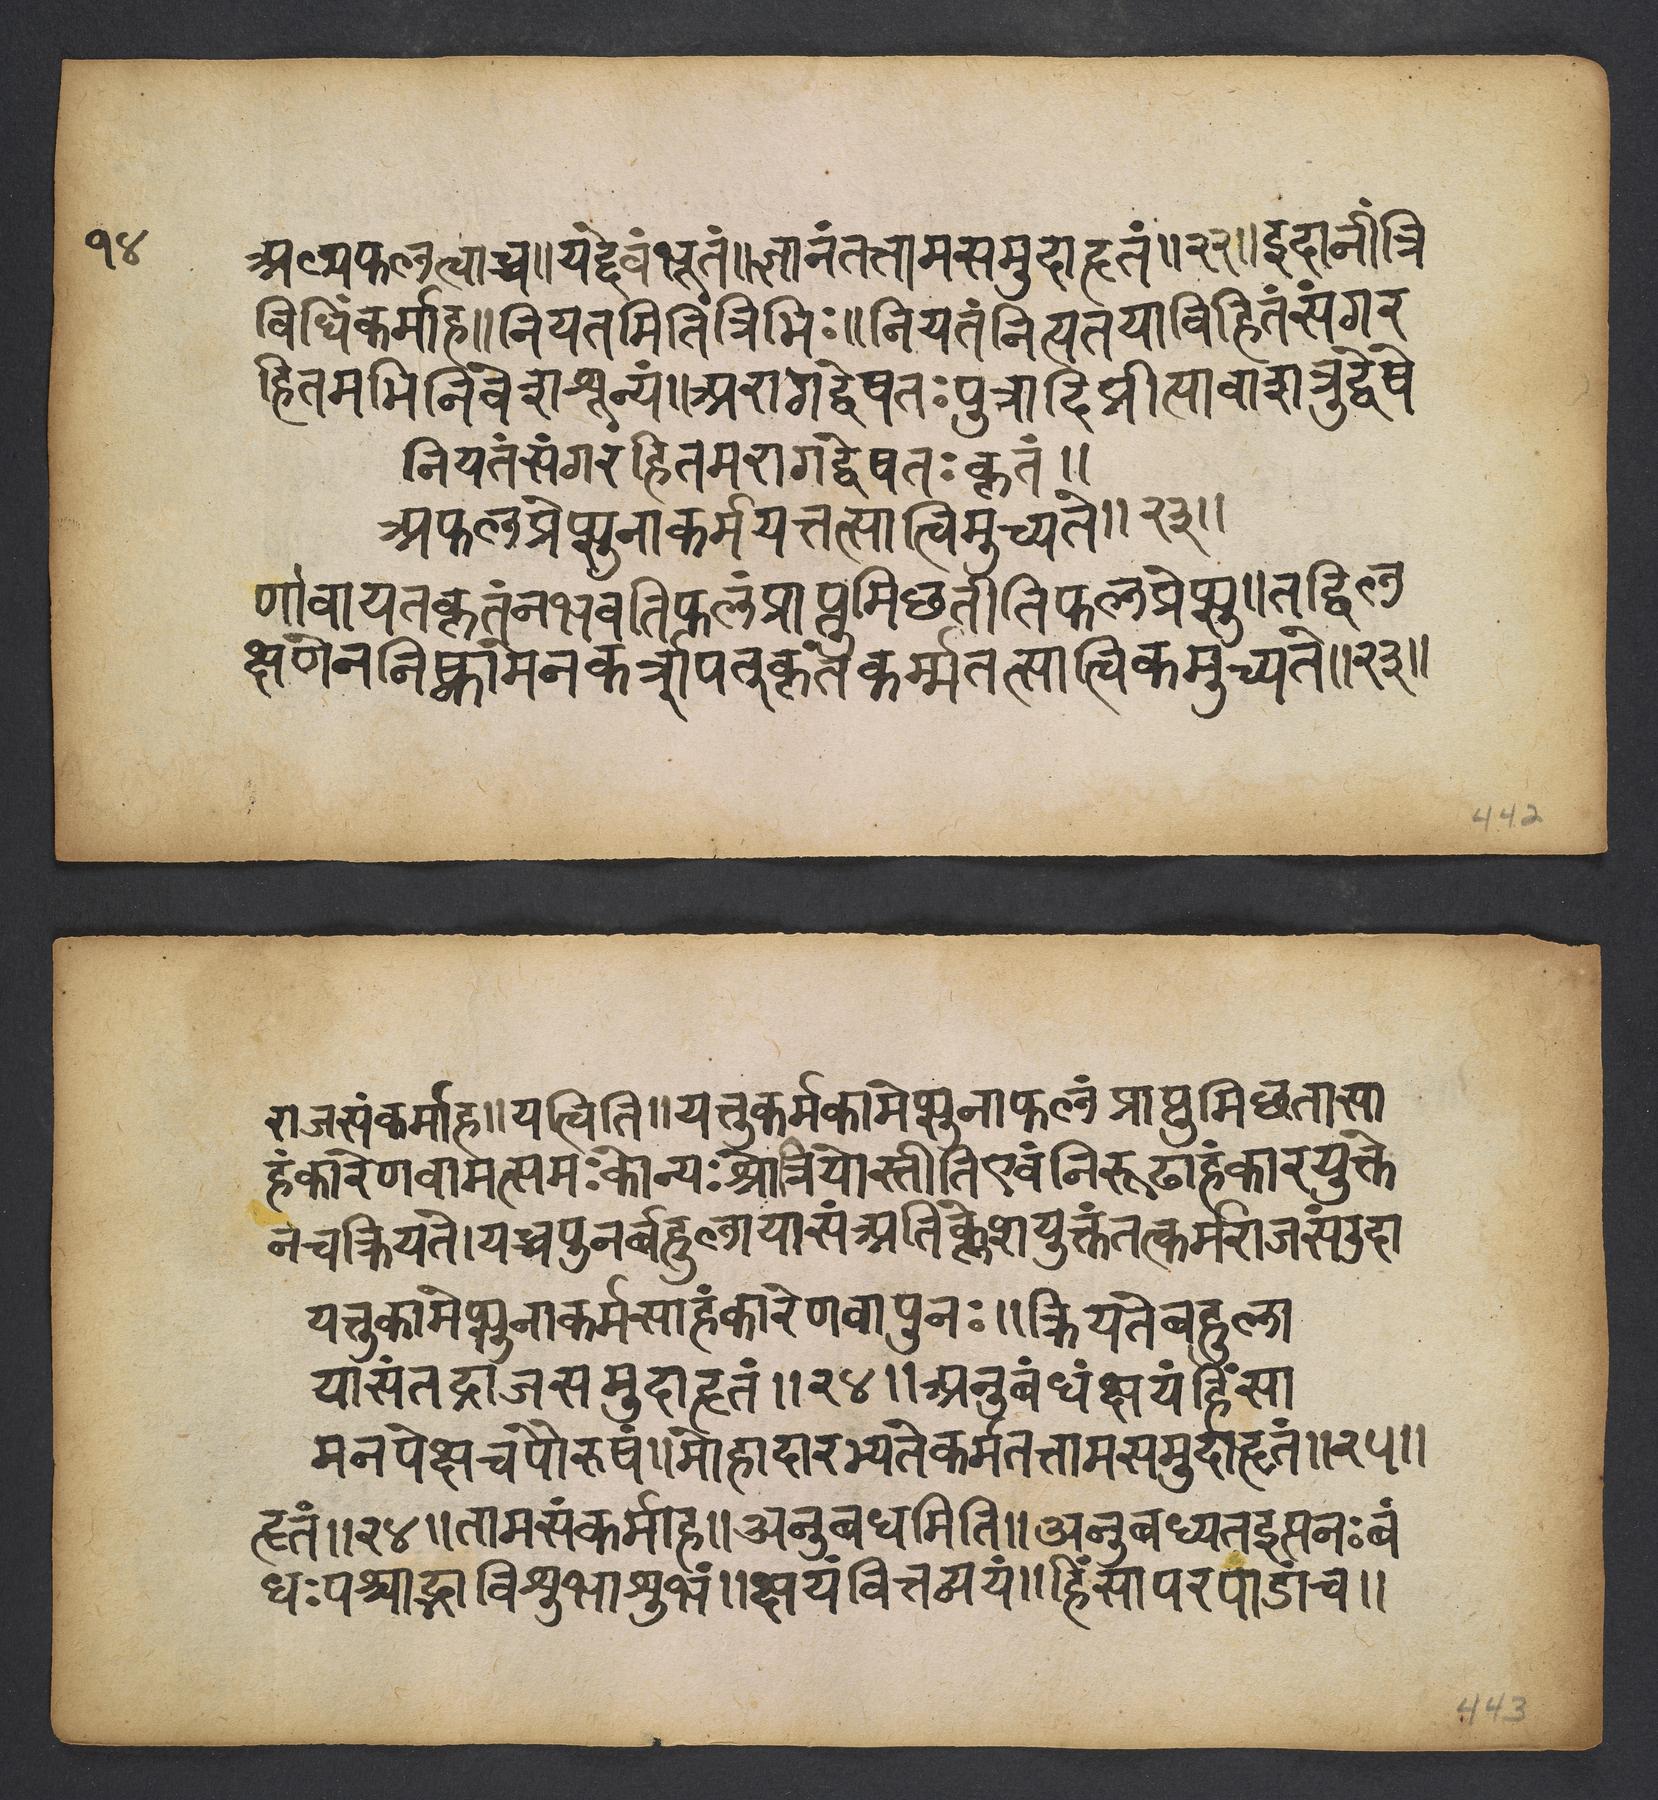 १४
अल्पफलत्वाच्च॥यद्देवंभूतं॥ज्ञानंतत्तामसमुदाहृतं॥२२॥इदानींत्रि
विधिंकर्माह॥नियतमितित्रिभिः॥नियतंनित्यतयाविहितंसंगर
हितमभिनिवेशशून्यं॥अरागद्वेषतःपुत्रादिप्रीत्यावाशत्रुद्वेषे
नियतंसंगरहितमरागद्वेषतःकृतं॥
अफलप्रेप्सुनाकर्मयत्तत्सात्विमुच्यते॥२३॥
णवायतकृतंनभवतिफलंप्राप्तुमिछतीतिफलप्रेप्सु॥तद्विल
क्षणेननिष्कामनकर्त्रापत्कृतंकर्म्मतत्सात्विकमुच्यते॥२३॥
442
राजसंकर्माह॥यत्विति॥यत्तुकर्मकामेप्सुनाफलंप्राप्तुमिछतासा
हंकारेणवामत्समःकोन्यःश्रोत्रियोस्तीतिएवंनिरूढाहंकारयुक्ते
नचक्रियते।यच्चपुनर्बहुलायासंअतिक्लेशयुक्तंतत्कर्मराजसंउदा
यत्तुकामेप्सुनाकर्मसाहंकारेणवापुनः॥क्रियतेबहुला
यासंतद्राजसमुदाहृतं॥२४॥अनुबंधंक्षयंहिंसा
मनपेक्षचपौरुषं॥मोहादारभ्यतेकर्मतत्तामसमुदाहृतं॥२५॥
हृतं॥२४॥तामसंकर्माह॥अनुबधमिति॥अनुबध्यतइसनःबं
धःपश्चाद्भाविशुभाशुभं॥क्षयंवित्तव्ययं॥हिंसापरपाडांच॥
443